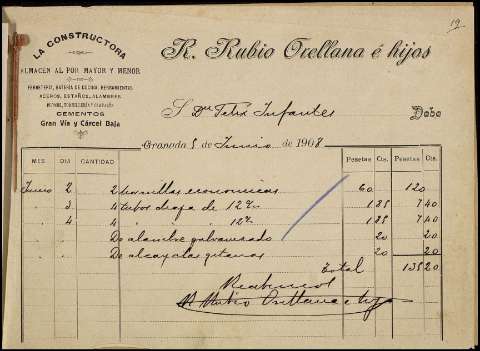 19
LA CONSTRUCTORA
ALMACEN AL POR MAYOR Y MENOR
FERRETERIA, BATERIA DE COCINA, HERRAMIENTAS
ACEROS, ESTAÑOS, ALAMBRES
CEMENTOS
Gran Vía y Cárcel Baja
R. Rubio Orellana é hijos
S Dn Felix Infantes Debe
Granada 5 de Junio de 1908
MES DIA CANTIDAD Pesetas Cts. Pesetas Cts.
Junio 2 2 hornillas economicas 60 120
3 4 tubos chapa de 12 c/m 1 85 7 40
4 4 " " 12 c/m 1 85 7 40
De alambre galvanizado 20 20
De alcayatas gitanas 20 20
Total 135 20
Recibimos
R Rubio Orellana e hijos